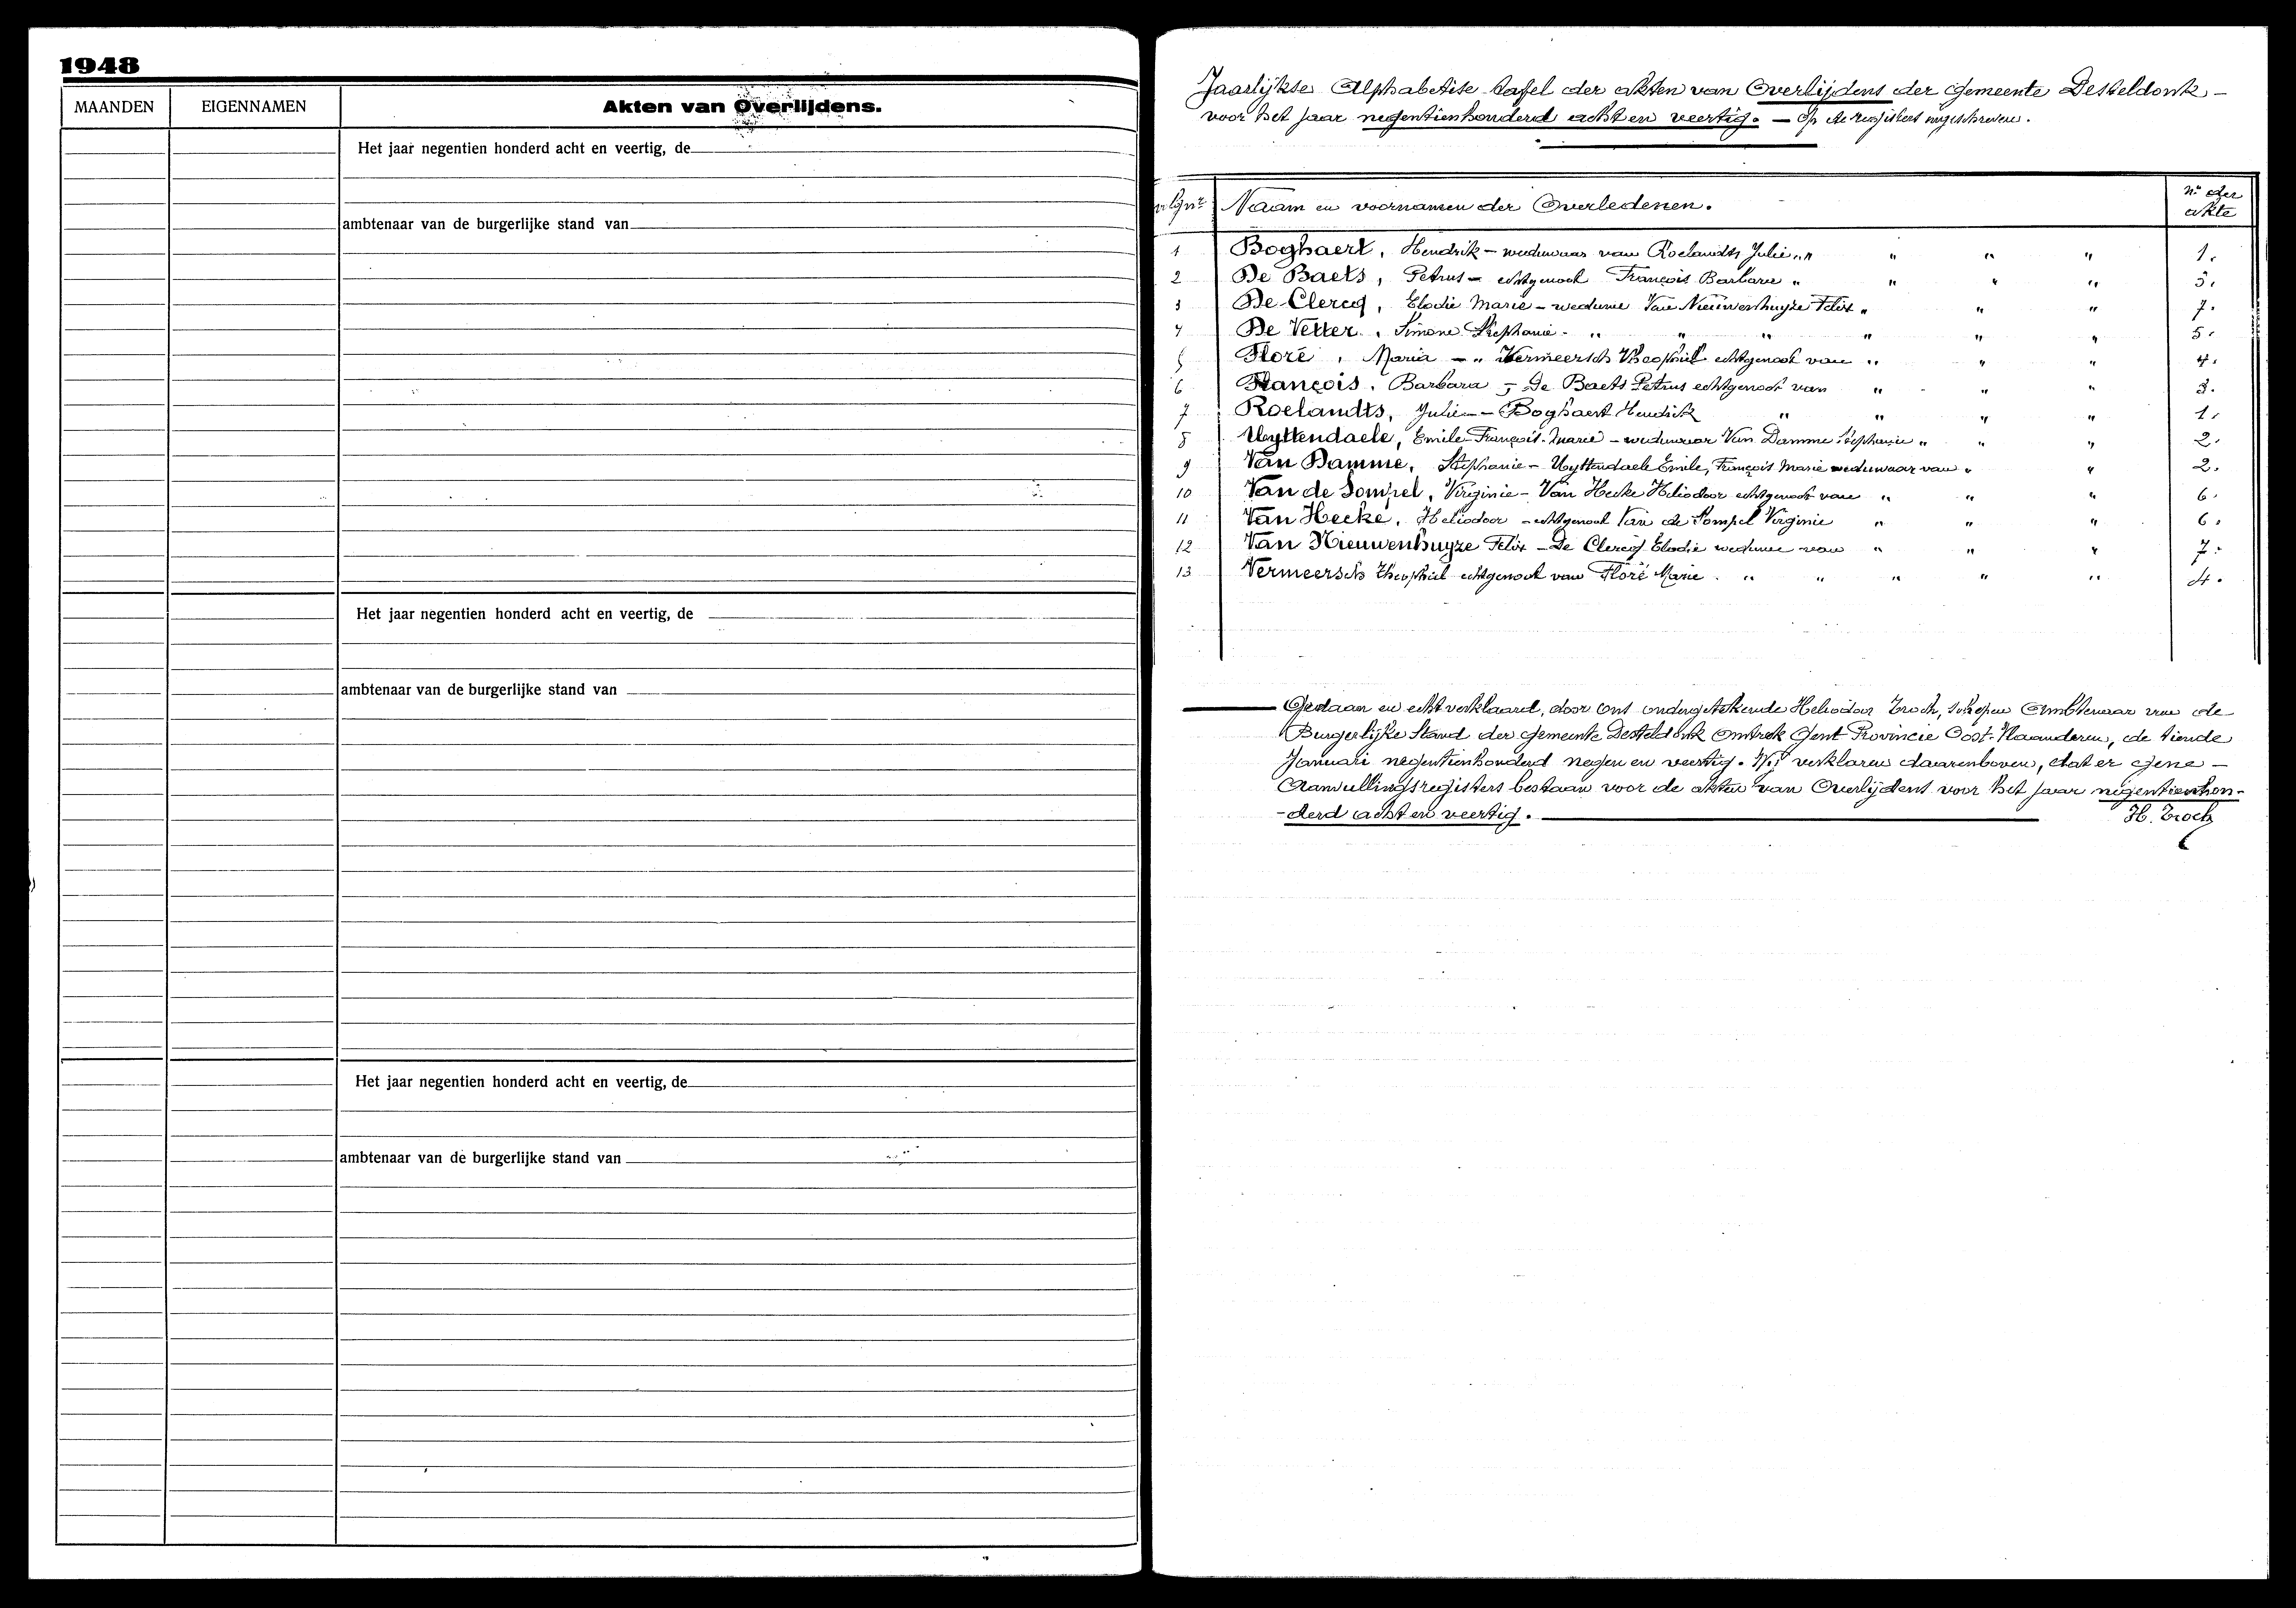 1948
MAANDEN EIGENNAMEN Akten van Overlijdens.
Het jaar negentien honderd acht en veertig, de
ambtenaar van de burgerlijke stand van
Het jaar negentien honderd acht en veertig, de
ambtenaar van de burgerlijke stand van
Het jaar negentien honderd acht en veertig, de
ambtenaar van de burgerlijke stand van
Jaarlijkse Alphabetise tafel der akten van Overlijdens der Gemeente Desteldonk –
voor het jaar negentienhonderd acht en veertig. – Op de registers ingeschreven.
volgnr Naam en voornamen der Overledenen. nr der
akte
1 Boghaert, Hendrik – weduwaar van Roelandts Julie " " " " 1.
2 De Baets, Petrus – echtgenoot François Barbara " " " " 3.
3 De Clercq, Elodie Marie – weduwe Van Nieuwenhuyze Felix " " " 7.
4 De Vetter, Simone Stephanie - " " " " " " 5.
5 Floré, Maria – " Vermeersch Theophiel echtgenoot van " " " 4.
6 François, Barbara – De Baets Petrus echtgenoot van " " " 3.
7 Roelandts, Julie – Boghaert Hendrik " " " " 1.
8 Uyttendaele, Emile François Marie – weduwaar Van Damme Stephanie " " " 2.
9 Van Damme, Stephanie – Uyttendaele Emile, François Marie weduwaar van " " 2.
10 Van de Sompel, Virginie – Van Hecke Heliodoor echtgenoot van " " " 6.
11 Van Hecke, Heliodoor – echtgenoot Van de Sompel Virginie " " " 6.
12 Van Nieuwenhuyze Felix – De Clercq Elodie weduwe van " " " 7.
13 Vermeersch Theophiel echtgenoot van Floré Marie . " " " " " 4.
Gedaan en echt verklaard, door ons ondergetekende Heliodoor Troch, schepen Ambtenaar van de
Burgerlijke Stand der gemeente Desteldonk Omtrek Gent Provincie Oost-Vlaanderen, de tiende
Januari negentienhonderd negen en veertig. Wij verklaren daarenboven, dat er gene –
Aanvullingsregisters bestaan voor de akten van Overlijdens voor het jaar negentienhon-
-derd acht en veertig. H. Troch